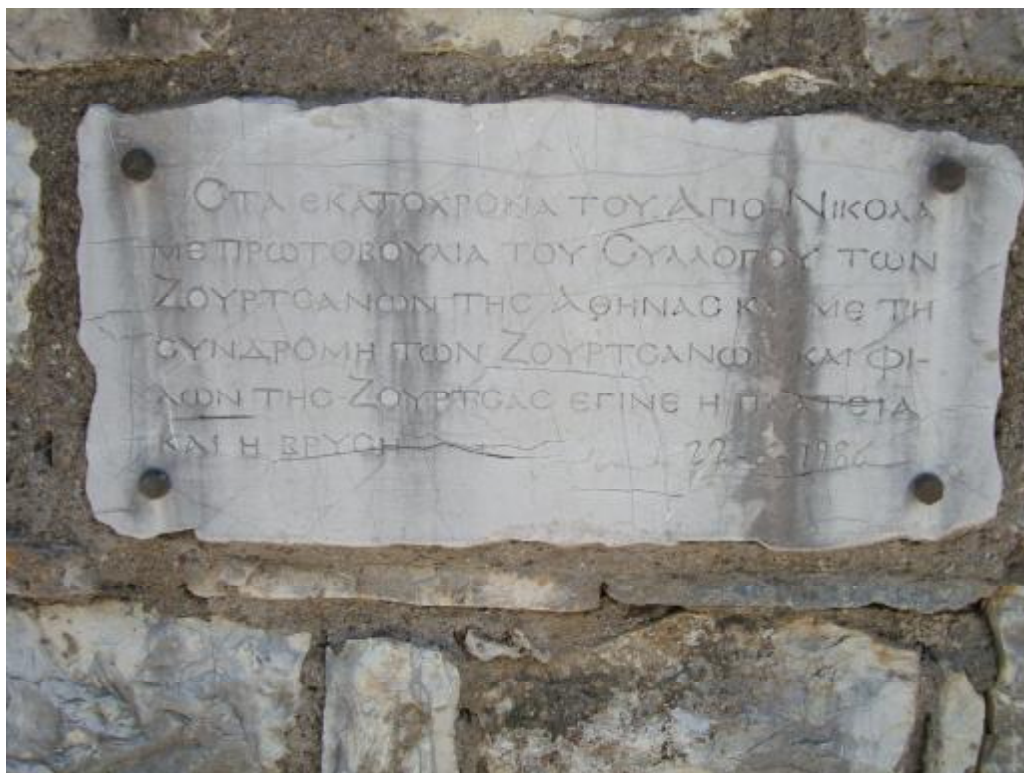 Στα εκατόχρονα του Αγιο-Νικόλα
με πρωτοβουλία του Συλλόγου των
Ζουρτσάνων της Αθήνας και με τη
συνδρομή των Ζουρτσάνων και φί-
λων της Ζούρτσας έγινε η πλατεία
και η βρύση